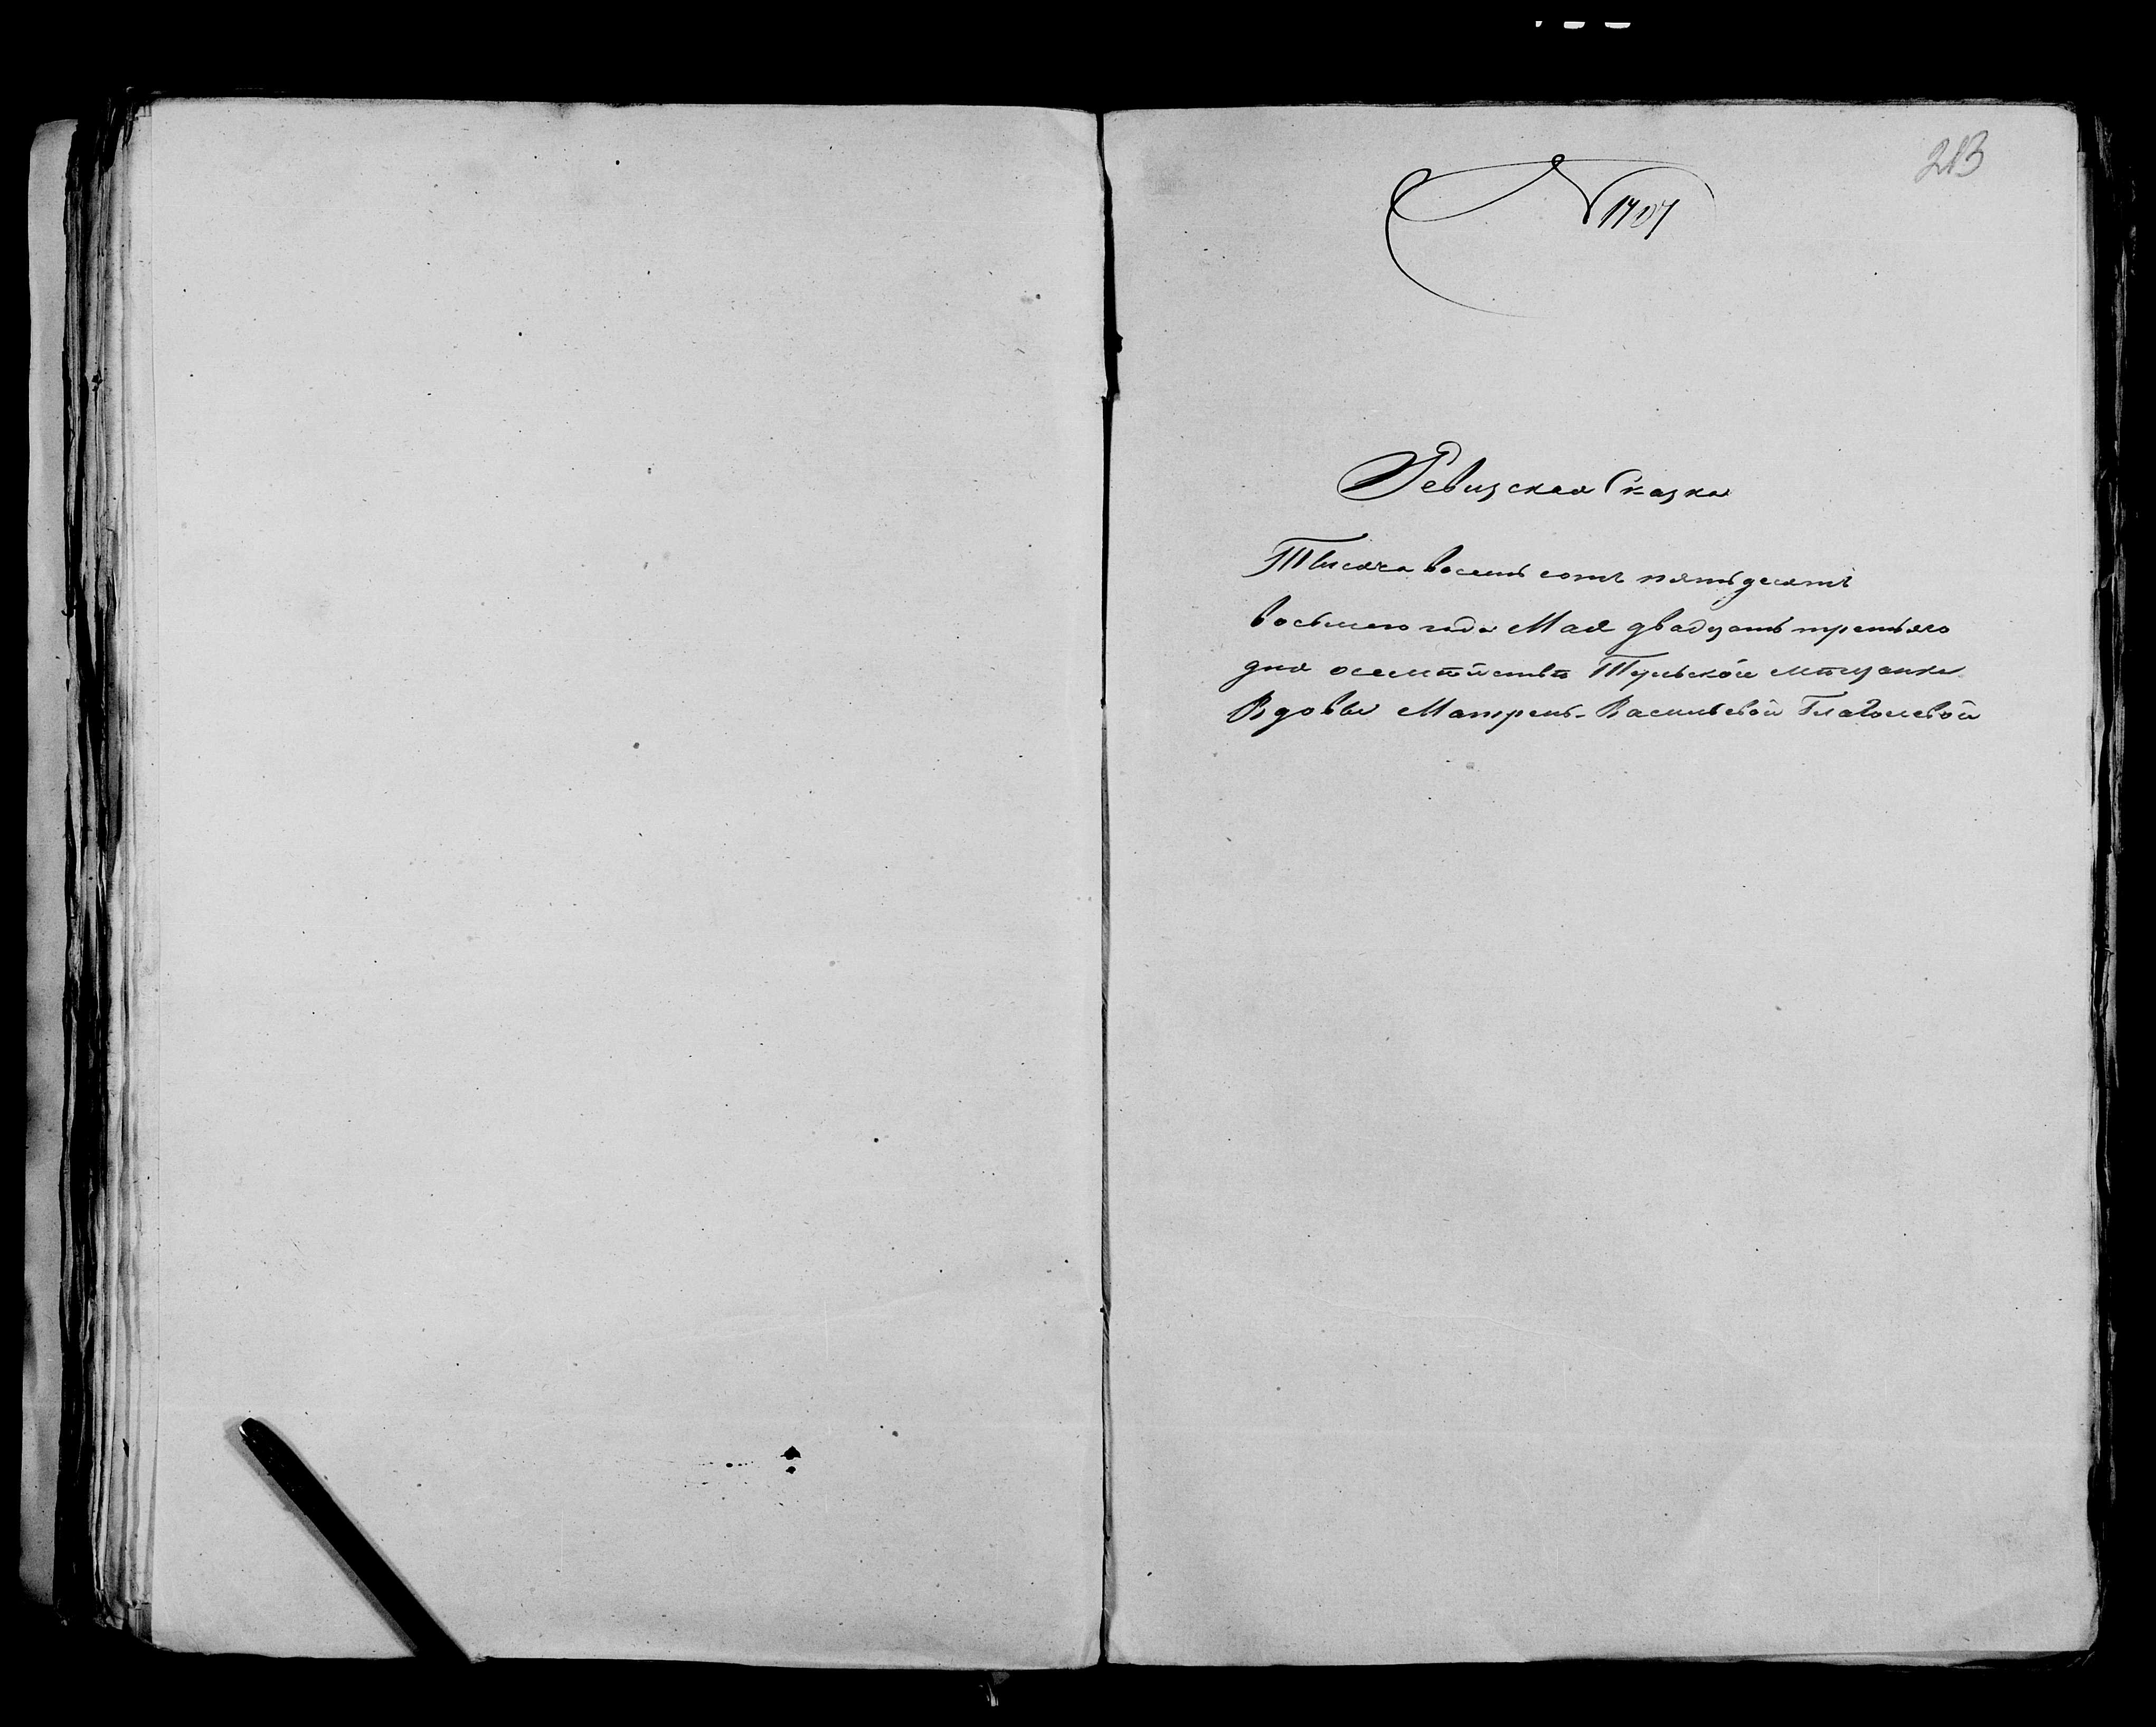 213
№ 1707
Ревизская Сказка
Тысяча восемь сотъ пятьдесятъ
восьмого года Мая двадцать третьяго
дня осемѣйствѣ Тульской мѣщанки
Вдовы Матрены Васильевой Глаголевой